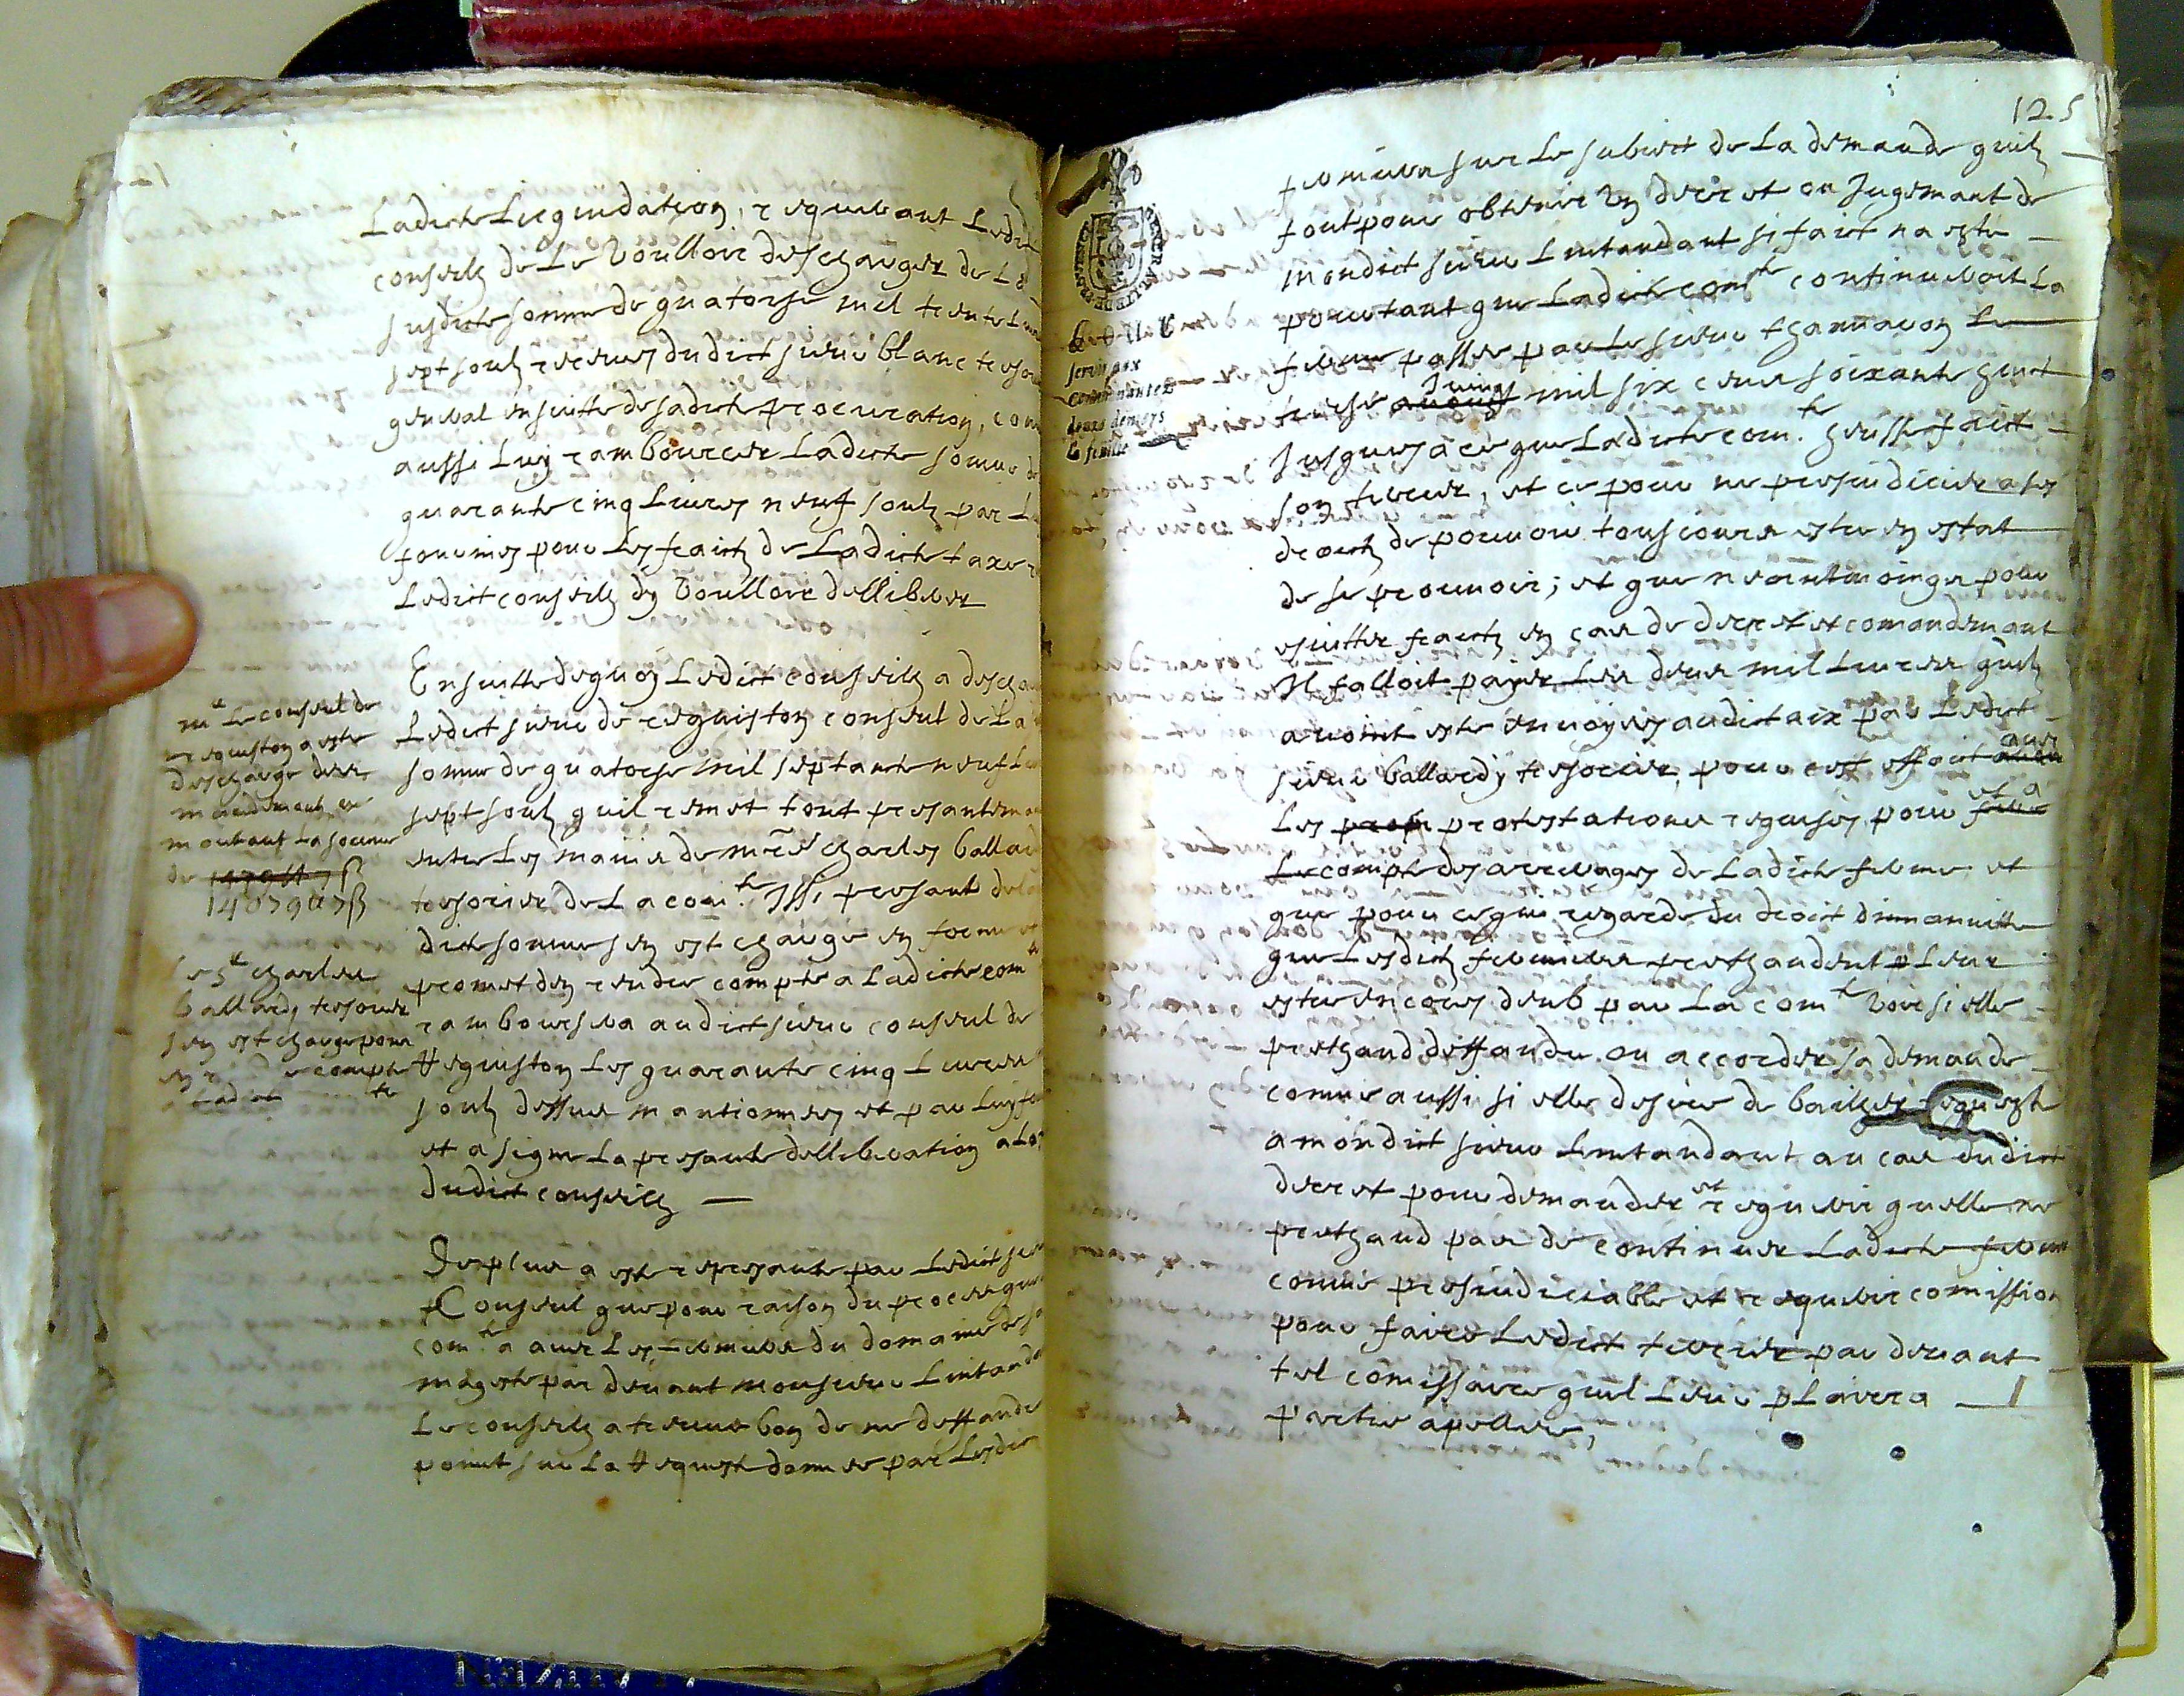 Ladicte Liequidation, requerant Ledict
conseilz de Le voulloir descharger de La
susdicte somme de quatorse mil trente
sept soulz receues dudict sieur blanc tresor
general ensuitte de sadicte procuration, com
aussi Luy rambourcer Ladicte somme de
quarante cinq Liures neuf soulz par L
fournies pour Les fraictz de Ladicte taxe
Ledict conseilz dy voulloir delliberer
Ensuitte dequoy Ledict conseilz a descha
Ledict sieur de requiston consul de La
somme de quatorse mil septante neuf Li
sept soulz quil remet tout presantema
entre Les mains de mre charles ballar
tresorier de La com.te Issi presant de La
dicte somme sen est charge en forme et
promet den rendre compte a Ladicte com te
rambourssera audict sieur consul de
Requiston Les quarante cinq Liures
soulz dessus mantionnees et par Luy fou
et a signe La presante delliberation a Lo
dudict conseilz
mr Le consul de
requiston a este
descharge
mandemant
montant La somme
de 14079 7 ß
14079 7 ß
Le sr charles
ballardy tresorier
sen est charge pour
en r compte
Ladict te
De plus a este represante par Ledict sieur
Consul que pour raison du proces que
com.te a auec Les fermiers du domaine de sa
mageste par deuant monsieur Lintanda
Le conseilz a treuue bon de ne deffandre
point sur La Requeste donnee par Lesdic
125
seruir aux
communautes
deux deniers
la feuille
fermiers sur Le subiect de La demande quilz
font pour obtenir un decret ou Jugemant de
mondict sieur Lintandant si faict na este
pourtant que Ladicte com.te continueroit La
ferme passee par Le sieur thannaron Le
treise auoust Juing mil six cens soixante huict
Jusques a ce que Ladicte com.te heusse faict
son terrier, et ce pour ne presiudicier a ses
droictz de pouuoir tousiours estre en estat
de se prouuoir; et que neantmoings pour
esuitter fraictz en cas de decret et comandemant
Il falloit payer Les deux mil Liures quilz
auoint este enuoyees audict aix par Ledict
sieur ballardy tresorier, pour cest effoict auec
Les protestations requises pour et a
Le compte des arreirages de Ladicte ferme et
que pour ce qui regarde du droict dimmanuitte
que Lesdictz fermiers prethandent Leur
estre encores deub par La com.te voir si elle
prethand deffandre ou accorder sa demande
comme aussi si elle desire de bailher requeste
a mondict sieur Lintandant au cas dudict
decret pour demander et requerir quelle ne
prethand pas de continuer Ladicte ferme
comme presiudiciable et requerir comission
pour faire Ledict terrier par deuant
tel comissaire quil Leur plairra
partie apellee,